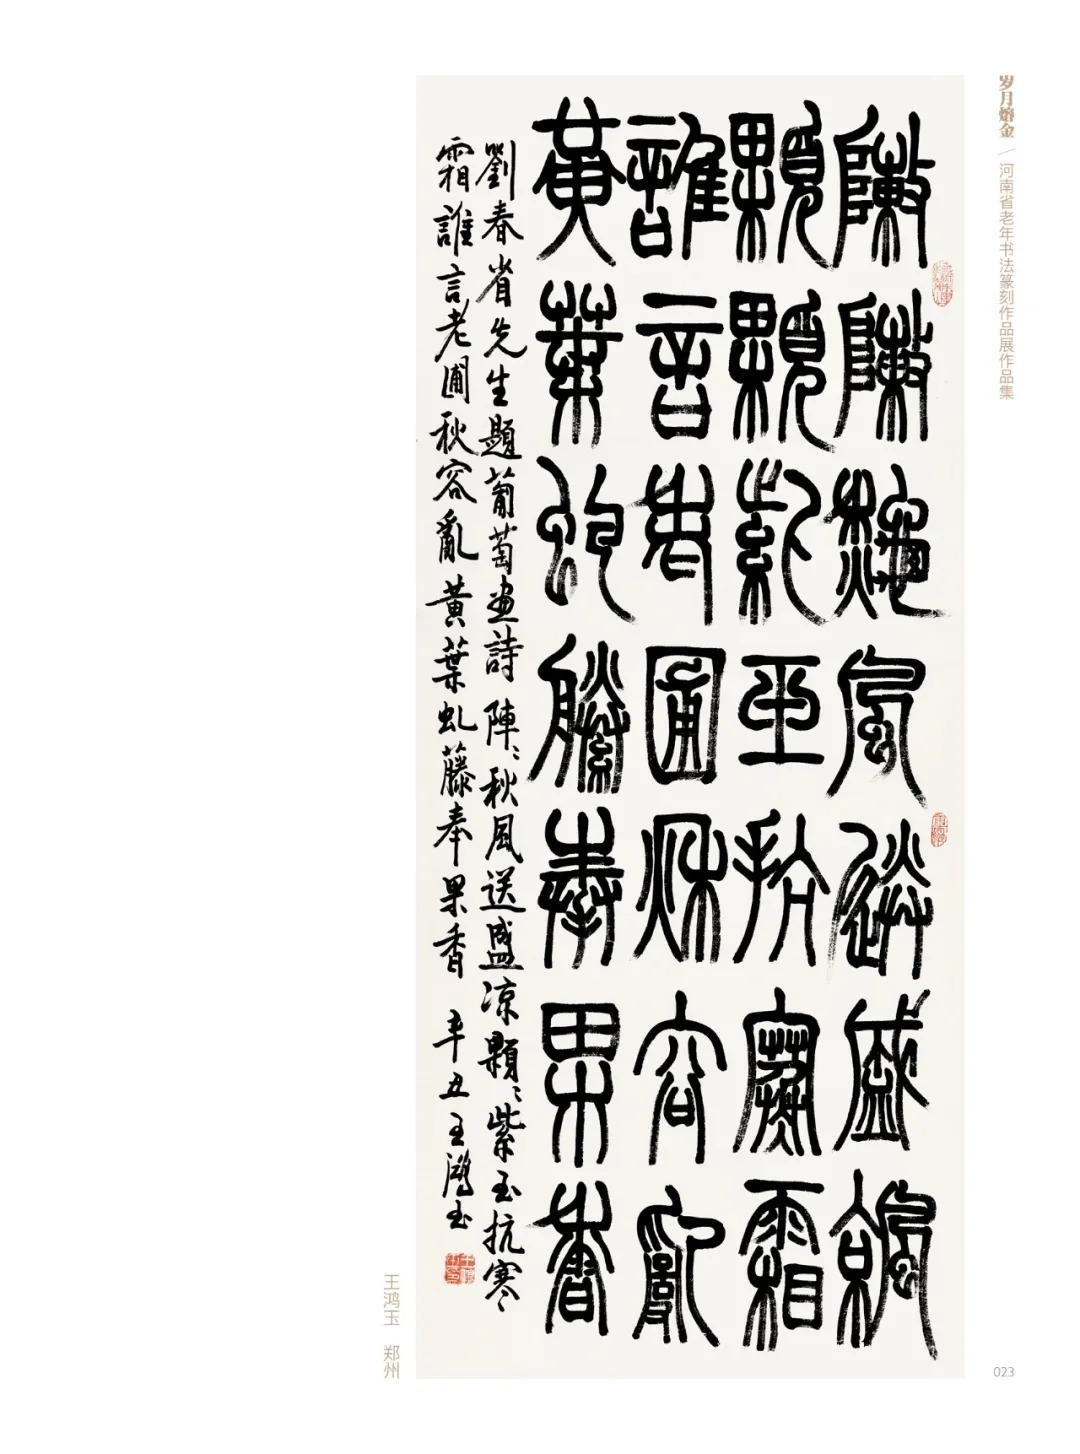 岁月熔金／河南省老年书法篆刻作品展作品集
陳陳秋風送盛涼
顆顆紫玉抗寒霜
誰言老圃秋容亂
黃葉虬藤奉果香
劉春省先生題葡萄画詩 陣〻秋風送盛凉顆〻紫玉抗寒〻
霜誰言老圃秋容亂黃葉虬藤奉果香 辛丑王鴻玉
王鸿玉 郑州
023